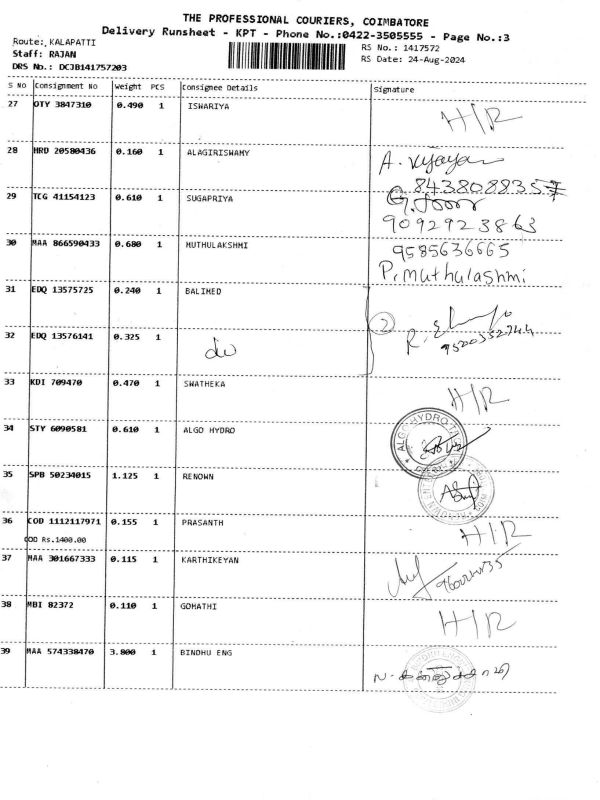 THE PROFESSIONAL COURIERS, COIMBATORE
Delivery Runsheet - KPT - Phone No.:0422-3505555 - Page No.:3
Route: KALAPATTI
Staff: RAJAN
DRS No.: DCJB141757203
RS No.: 1417572
RS Date: 24-Aug-2024
S NO Consignment No Weight PCS Consignee Details Signature
27 OTY 3847310 0.490 1 ISWARIYA H/R
28 HRD 20580436 0.160 1 ALAGIRISWAMY A. Vijayan
8438088357
29 TCG 41154123 0.610 1 SUGAPRIYA
9092923863
30 MAA 866590433 0.680 1 MUTHULAKSHMI 9585636665
P. muthulashmi
31 EDQ 13575725 0.240 1 BALIMED
32 EDQ 13576141 0.325 1 do 2 R.
33 KDI 709470 0.470 1 SWATHEKA H/R
34 STY 6090581 0.610 1 ALGO HYDRO ALGO HYDRO
35 SPB 50234015 1.125 1 RENOWN
36 COD 1112117971 0.155 1 PRASANTH H/R
COD Rs.1400.00
37 MAA 301667333 0.115 1 KARTHIKEYAN
38 MBI 82372 0.110 1 GOMATHI H/R
39 MAA 574338470 3.800 1 BINDHU ENG